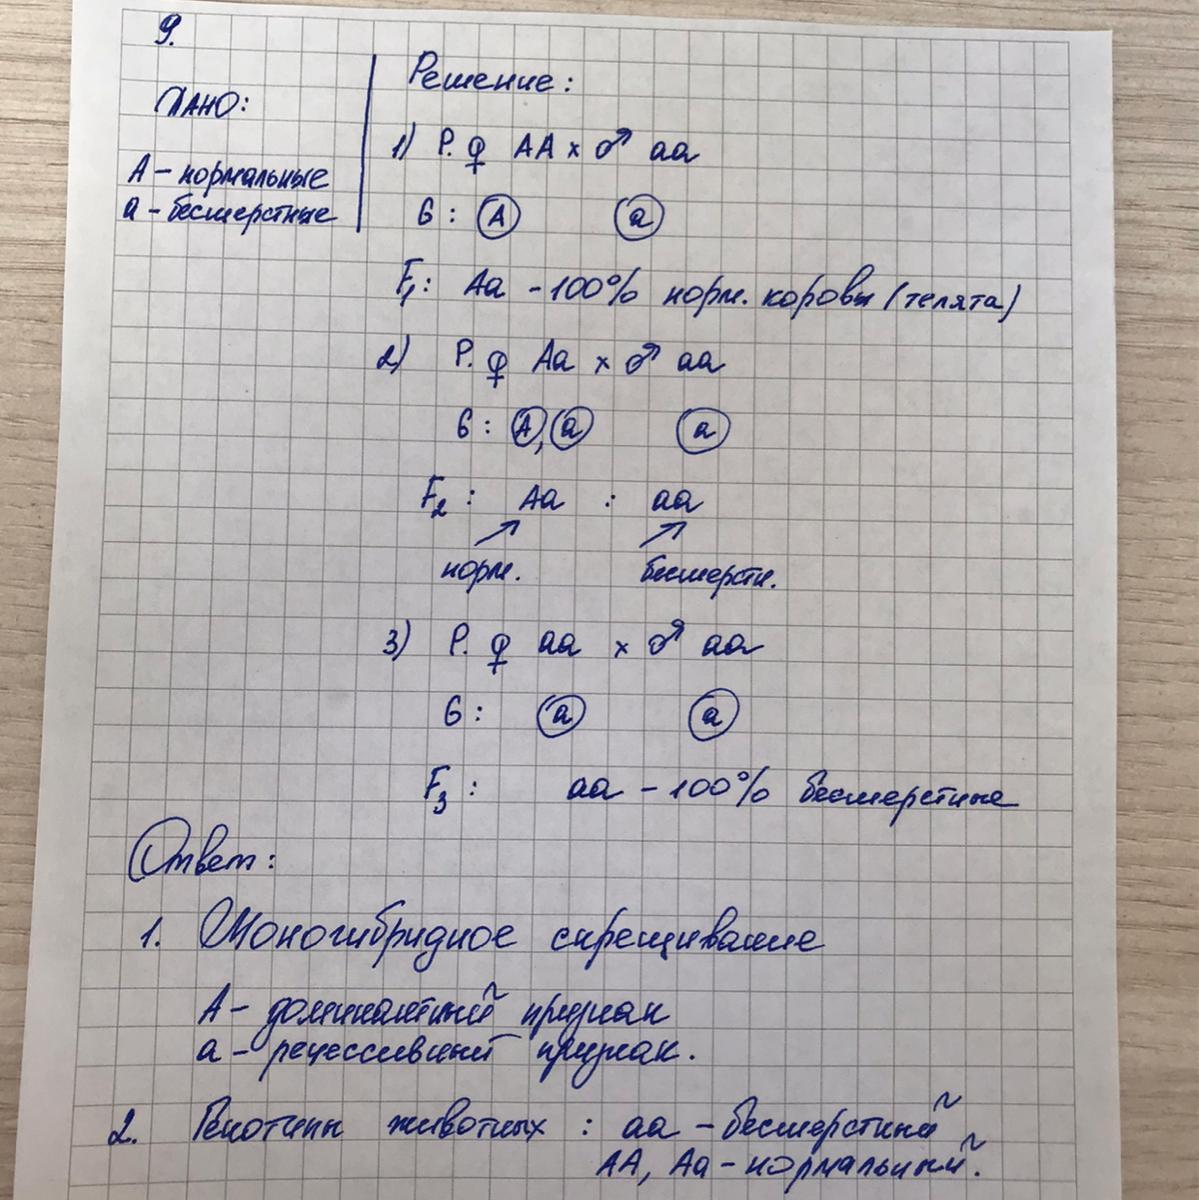 9.
Дано:
А - нормальные
а - бесшерстные
Решение:
1) Р. ♀ АА × ♂ аа
G : А а
F₁ : Аа - 100% норм. коровы (телята)
2) Р. ♀ Аа × ♂ аа
G : А, а а
F₂ : Аа : аа
норм. бесшерстн.
3) Р. ♀ аа × ♂ аа
G : а а
F₃ : аа - 100% бесшерстные
Ответ:
1. Моногибридное скрещивание
А - доминантный признак
а - рецессивный признак.
2. Генотипы животных : аа - бесшерстный
АА, Аа - нормальный.